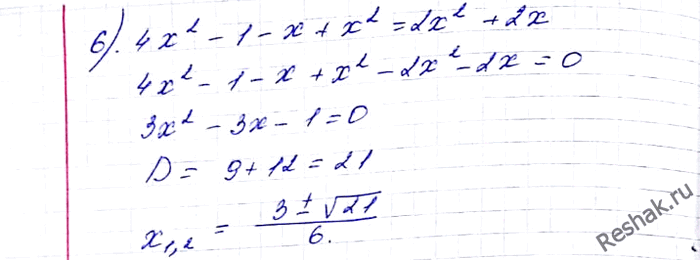 б). 4x² - 1 - x + x² = 2x² + 2x
4x² - 1 - x + x² - 2x² - 2x = 0
3x² - 3x - 1 = 0
D = 9 + 12 = 21
x₁,₂ = (3 ± √21) / 6.
Reshak.ru